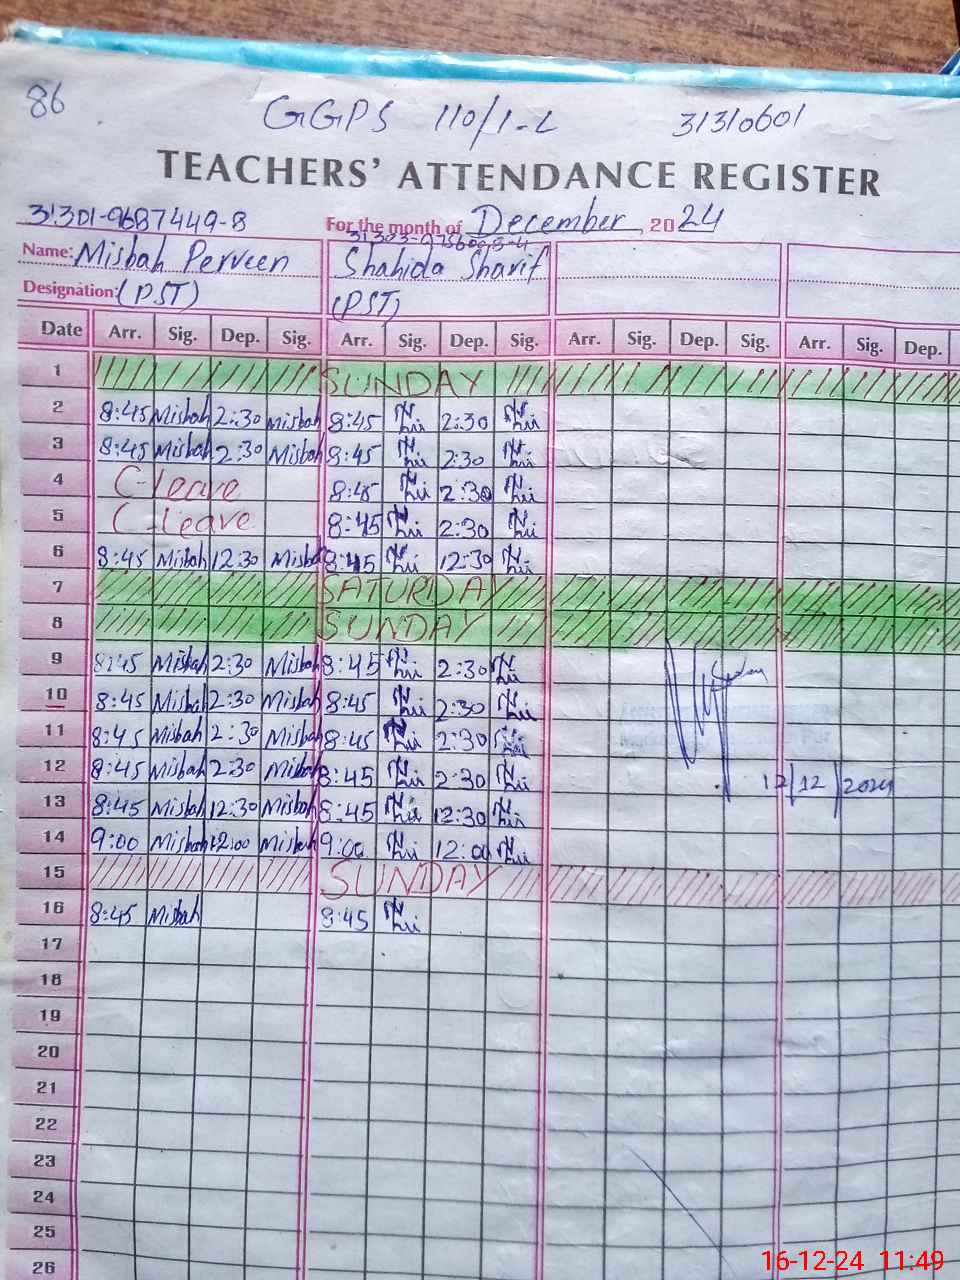 86
GGPS 110/1-L 31310601
TEACHERS' ATTENDANCE REGISTER
31301-9687449-8 For the month of December 2024
Name: Misbah Perveen Shahida Sharif
Designation: (PST) (PST)
Date Arr. Sig. Dep. Sig. Arr. Sig. Dep. Sig. Arr. Sig. Dep. Sig. Arr. Sig. Dep.
1 SUNDAY
2 8:45 Misbah 2:30 Misbah 8:45 2:30
3 8:45 Misbah 2:30 Misbah 8:45 2:30
4 C-leave 8:45 2:30
5 C-leave 8:45 2:30
6 8:45 Misbah 12:30 Misbah 8:45 12:30
7 SATURDAY
8 SUNDAY
9 8:45 Misbah 2:30 Misbah 8:45 2:30
10 8:45 Misbah 2:30 Misbah 8:45 2:30
11 8:45 Misbah 2:30 Misbah 8:45 2:30
12 8:45 Misbah 2:30 Misbah 8:45 2:30 12/12/2024
13 8:45 Misbah 12:30 Misbah 8:45 12:30
14 9:00 Misbah 12:00 Misbah 9:00 12:00
15 SUNDAY
16 8:45 Misbah 8:45
17
18
19
20
21
22
23
24
25
26
16-12-24 11:49